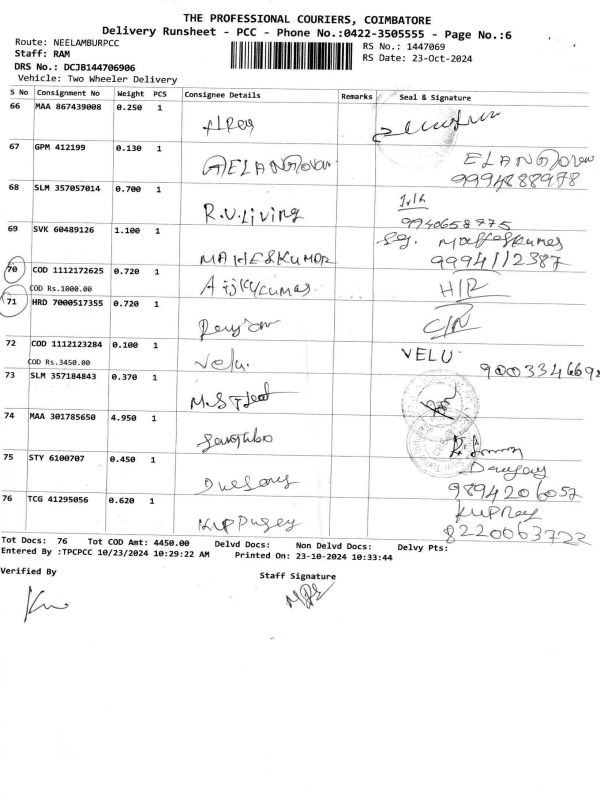 THE PROFESSIONAL COURIERS, COIMBATORE
Delivery Runsheet - PCC - Phone No.:0422-3505555 - Page No.:6
Route: NEELAMBURPCC
RS No.: 1447069
Staff: RAM
RS Date: 23-Oct-2024
DRS No.: DCJB144706906
Vehicle: Two Wheeler Delivery
S No Consignment No Weight PCS Consignee Details Remarks Seal & Signature
66 MAA 867439008 0.250 1
67 GPM 412199 0.130 1 ELANGOvan
9994888978
68 SLM 357057014 0.700 1 R.V.Living
9940658775
69 SVK 60489126 1.100 1 MAHESKUMAR
9994112387
70 COD 1112172625 0.720 1 H/R
COD Rs.1000.00
71 HRD 7000517355 0.720 1 C/N
72 COD 1112123284 0.100 1 Velu. VELU.
COD Rs.3450.00 9003346698
73 SLM 357184843 0.370 1
74 MAA 301785650 4.950 1
75 STY 6100707 0.450 1
9894206057
76 TCG 41295056 0.620 1
8220063722
Tot Docs: 76 Tot COD Amt: 4450.00 Delvd Docs: Non Delvd Docs: Delvy Pts:
Entered By :TPCPCC 10/23/2024 10:29:22 AM Printed On: 23-10-2024 10:33:44
Verified By
Staff Signature